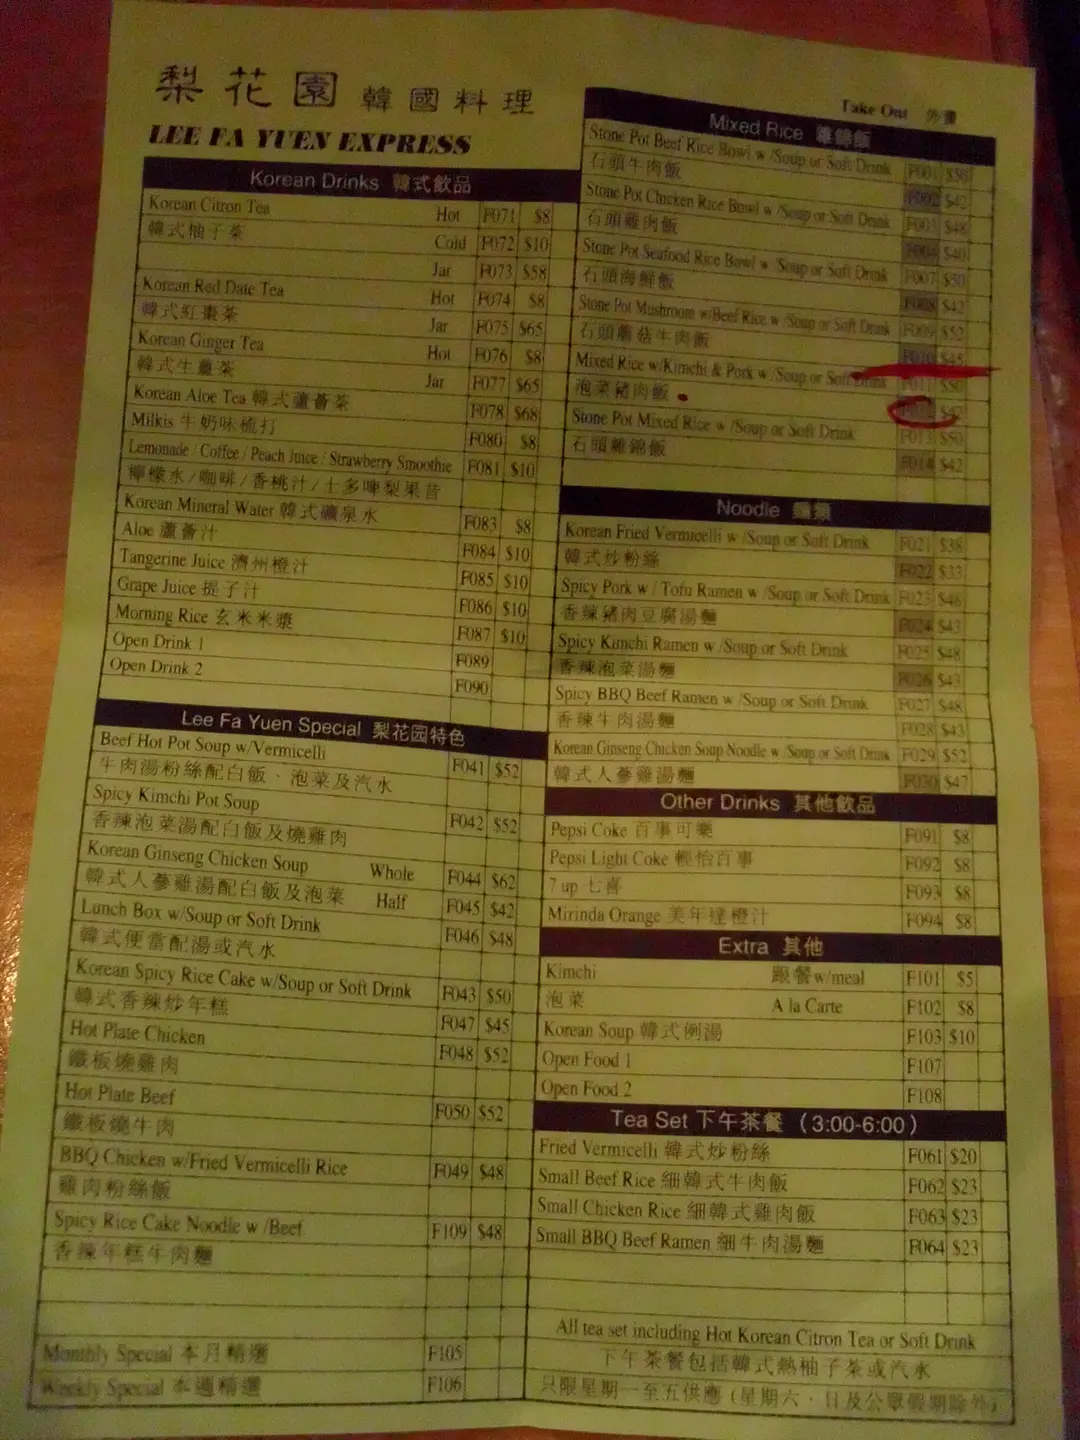 梨花園 韓國料理
LEE FA YUEN EXPRESS
Korean Drinks 韓式飲品
Korean Citron Tea Hot F071 $8
韓式柚子茶 Cold F072 $10
Jar F073 $58
Korean Red Date Tea Hot F074 $8
韓式紅棗茶 Jar F075 $65
Korean Ginger Tea Hot F076 $8
韓式生薑茶 Jar F077 $65
Korean Aloe Tea 韓式蘆薈茶 F078 $68
Milkis 牛奶味梳打 F080 $8
Lemonade / Coffee / Peach Juice / Strawberry Smoothie F081 $10
檸檬水/咖啡/香桃汁/士多啤梨果昔
Korean Mineral Water 韓式礦泉水 F083 $8
Aloe 蘆薈汁 F084 $10
Tangerine Juice 濟州橙汁 F085 $10
Grape Juice 提子汁 F086 $10
Morning Rice 玄米米漿 F087 $10
Open Drink 1 F089
Open Drink 2 F090
Lee Fa Yuen Special 梨花园特色
Beef Hot Pot Soup w/Vermicelli F041 $52
牛肉湯粉絲配白飯、泡菜及汽水
Spicy Kimchi Pot Soup F042 $52
香辣泡菜湯配白飯及燒雞肉
Korean Ginseng Chicken Soup Whole F044 $62
韓式人蔘雞湯配白飯及泡菜 Half F045 $42
Lunch Box w/Soup or Soft Drink F046 $48
韓式便當配湯或汽水
Korean Spicy Rice Cake w/Soup or Soft Drink F043 $50
韓式香辣炒年糕 F047 $45
Hot Plate Chicken F048 $52
鐵板燒雞肉
Hot Plate Beef F050 $52
鐵板燒牛肉
BBQ Chicken w/Fried Vermicelli Rice F049 $48
雞肉粉絲飯
Spicy Rice Cake Noodle w /Beef F109 $48
香辣年糕牛肉麵
Monthly Special 本月精選 F105
Weekly Special 本週精選 F106
Take Out 外賣
Mixed Rice 雜錦飯
Stone Pot Beef Rice Bowl w /Soup or Soft Drink F001 $50
石頭牛肉飯 F002 $42
Stone Pot Chicken Rice Bowl w /Soup or Soft Drink F003 $48
石頭雞肉飯 F004 $40
Stone Pot Seafood Rice Bowl w /Soup or Soft Drink F007 $50
石頭海鮮飯 F008 $42
Stone Pot Mushroom w/Beef Rice w /Soup or Soft Drink F009 $52
石頭蘑菇牛肉飯 F010 $45
Mixed Rice w/Kimchi & Pork w /Soup or Soft Drink F011 $50
泡菜豬肉飯 $42
Stone Pot Mixed Rice w /Soup or Soft Drink F013 $50
石頭雜錦飯 F014 $42
Noodle 麵類
Korean Fried Vermicelli w /Soup or Soft Drink F021 $38
韓式炒粉絲 F022 $33
Spicy Pork w / Tofu Ramen w /Soup or Soft Drink F023 $48
香辣豬肉豆腐湯麵 F024 $43
Spicy Kimchi Ramen w /Soup or Soft Drink F025 $48
香辣泡菜湯麵 F026 $43
Spicy BBQ Beef Ramen w /Soup or Soft Drink F027 $48
香辣牛肉湯麵 F028 $43
Korean Ginseng Chicken Soup Noodle w /Soup or Soft Drink F029 $52
韓式人蔘雞湯麵 F030 $47
Other Drinks 其他飲品
Pepsi Coke 百事可樂 F091 $8
Pepsi Light Coke 輕怡百事 F092 $8
7 up 七喜 F093 $8
Mirinda Orange 美年達橙汁 F094 $8
Extra 其他
Kimchi 跟餐w/meal F101 $5
泡菜 A la Carte F102 $8
Korean Soup 韓式例湯 F103 $10
Open Food 1 F107
Open Food 2 F108
Tea Set 下午茶餐 (3:00-6:00)
Fried Vermicelli 韓式炒粉絲 F061 $20
Small Beef Rice 細韓式牛肉飯 F062 $23
Small Chicken Rice 細韓式雞肉飯 F063 $23
Small BBQ Beef Ramen 細牛肉湯麵 F064 $23
All tea set including Hot Korean Citron Tea or Soft Drink
下午茶餐包括韓式熱柚子茶或汽水
只限星期一至五供應 (星期六、日及公眾假期除外)